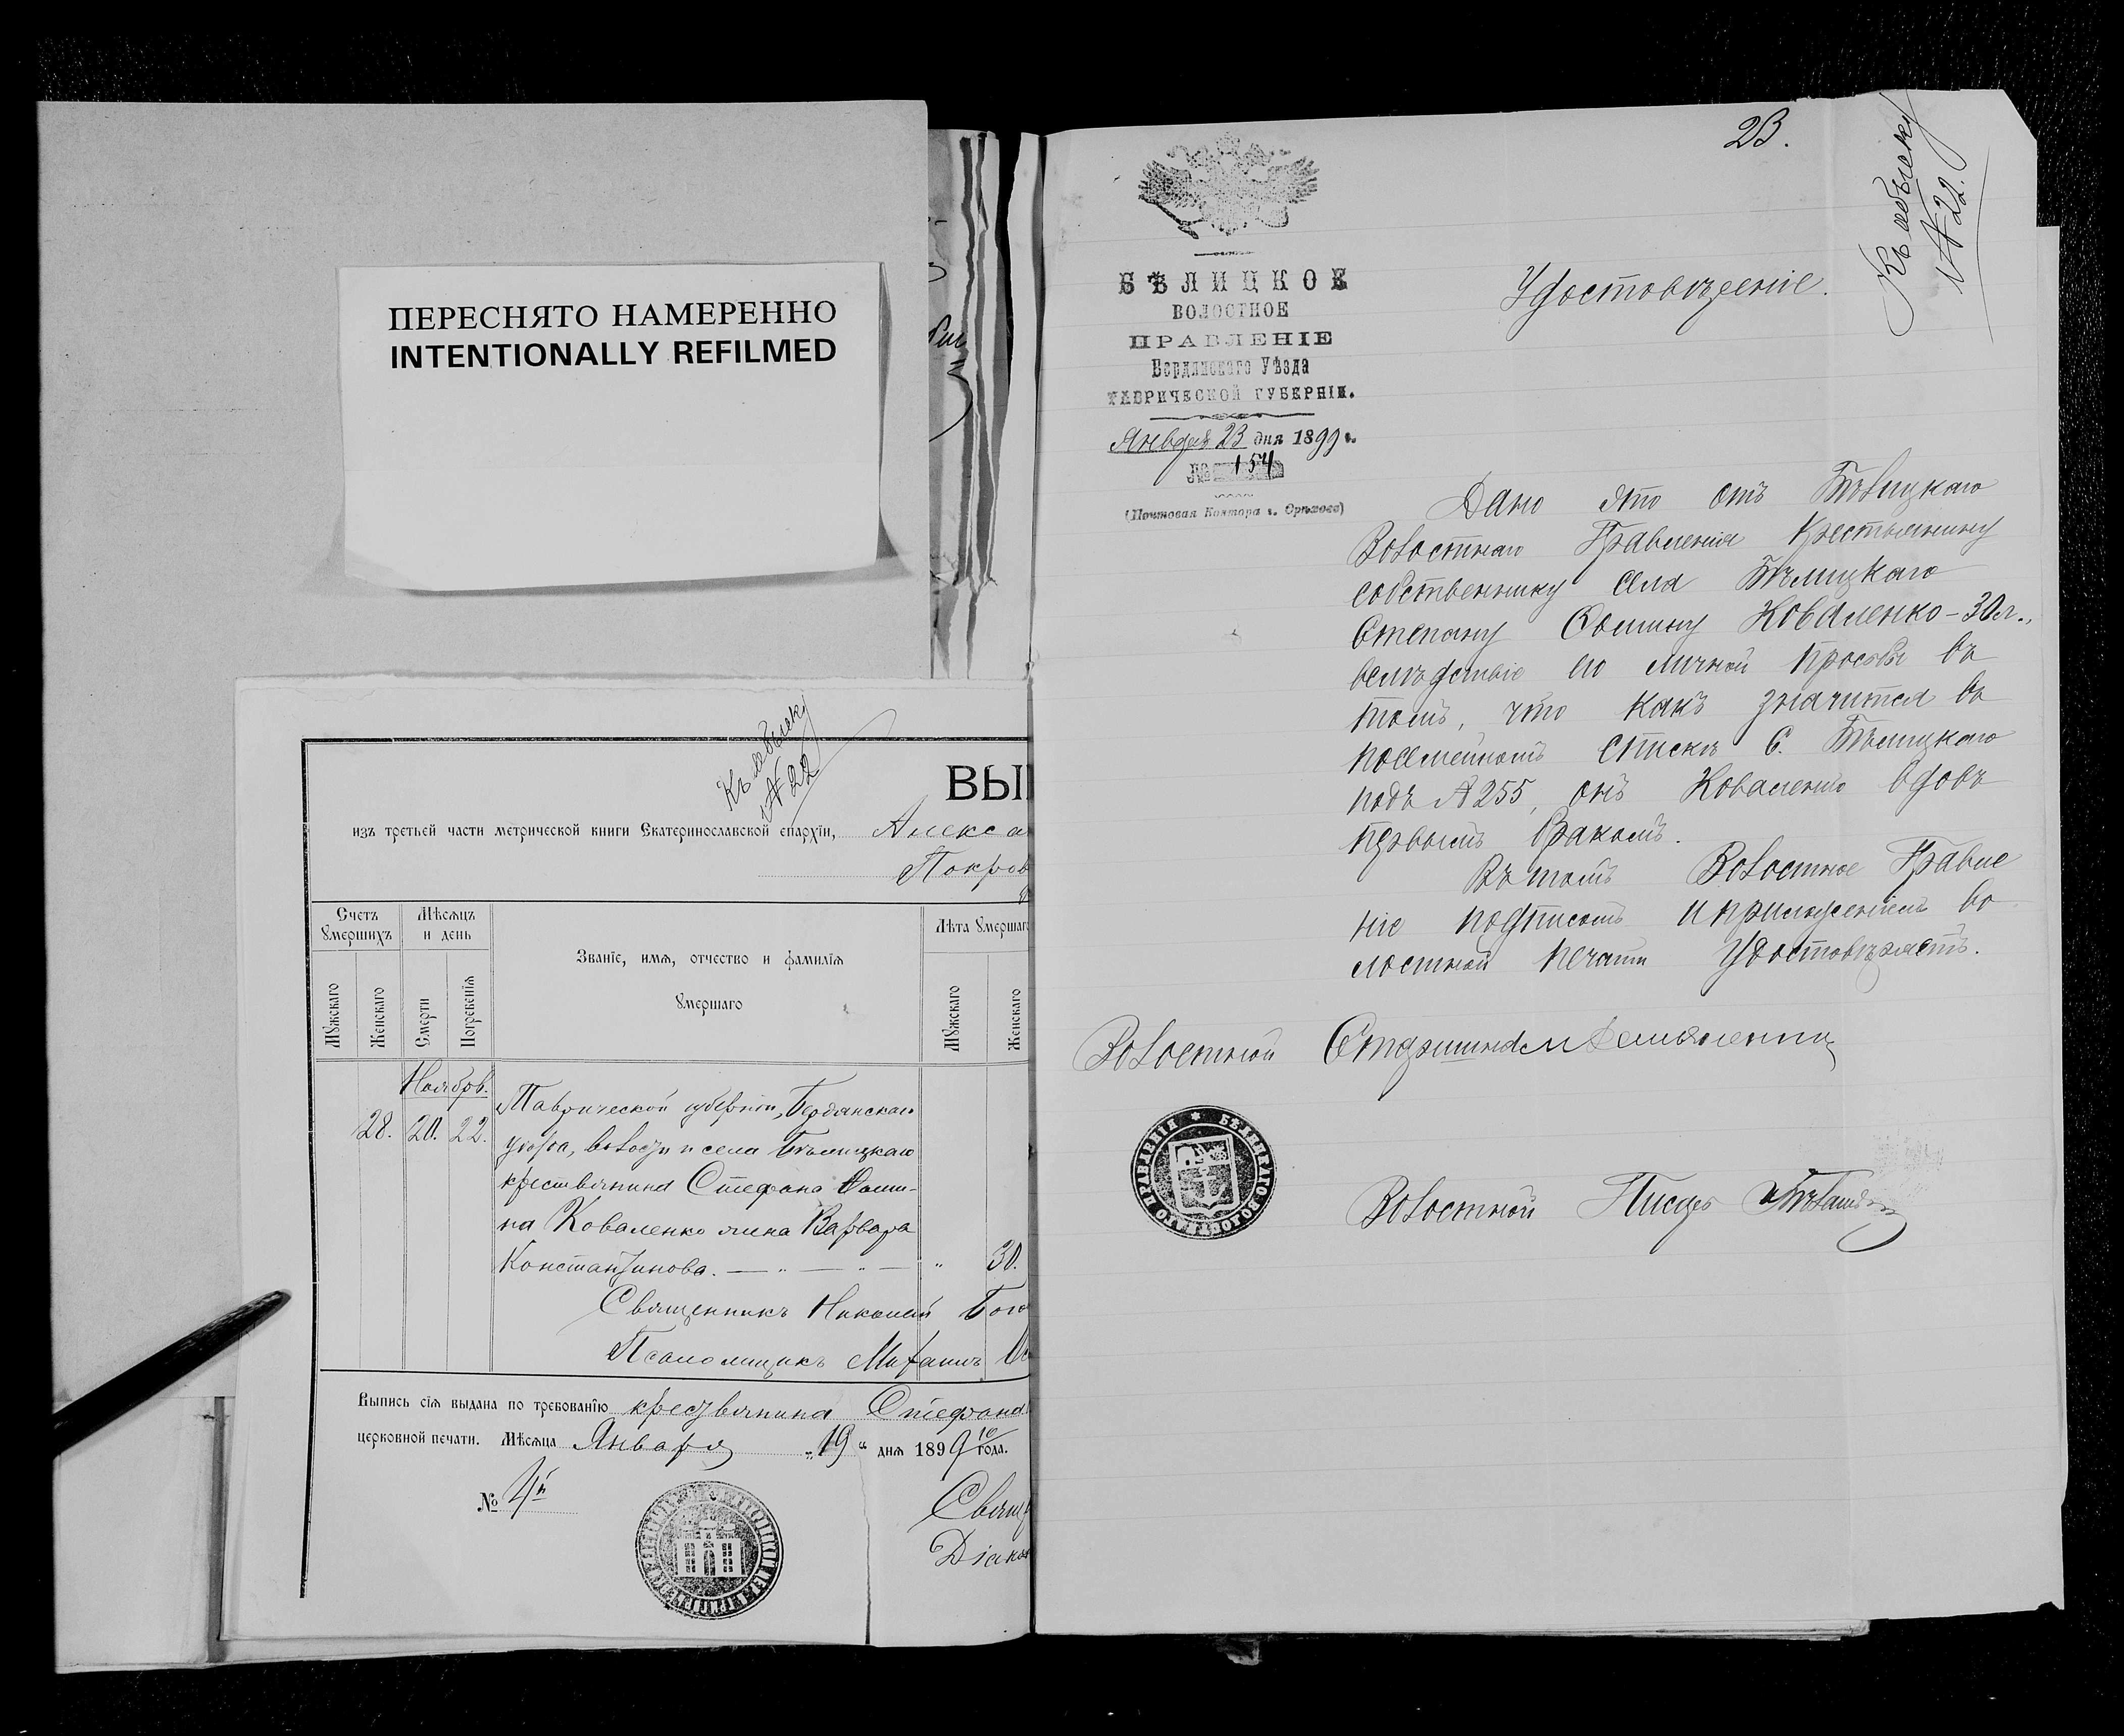 ПЕРЕСНЯТО НАМЕРЕННО
INTENTIONALLY REFILMED
Къ обыску
№ 22
ВЫ
изъ третьей части метрической книги Екатеринославской епархіи, Алекса
Покров
Счетъ умершихъ
Мѣсяцъ и день
Званіе, имя, отчество и фамилія умершаго
Лѣта умершаго
Мужскаго
Женскаго
Смерти
Погребенія
Мужскаго
Женскаго
Ноябрь.
28. 20. 22.
Таврической губерніи, Бердянскаго
уѣзда, волости и села Бѣлицкаго
крестьянина Стефана Фоми-
на Коваленко жена Варвара
Константинова. — " — " — " 30.
Священникъ Николай Бого
Псаломщикъ Михаилъ
Выпись сія выдана по требованію крестьянина Стефана
церковной печати. Мѣсяца Января „19“ дня 1899 года.
№ 4й
Свящ
Діакон
23.
Къ обыску
№ 22.
БѢЛИЦКОЕ
ВОЛОСТНОЕ
ПРАВЛЕНІЕ
Бердянскаго Уѣзда
ТАВРИЧЕСКОЙ ГУБЕРНІИ.
Января 23 дня 1899 г.
№ 154
(Почтовая Контора г. Орѣховъ)
Удостовѣреніе.
Дано это отъ Бѣлицкаго
Волостнаго Правленія крестьянину
собственнику села Бѣлицкаго
Степану Фомину Коваленко – 30 л.,
вслѣдствіе его личной просьбы въ
томъ, что какъ значится въ
посемейномъ спискѣ с. Бѣлицкаго
подъ № 255, онъ Коваленко вдовъ
первымъ бракомъ.
Въ томъ Волостное Правле
ніе подписомъ и приложеніемъ во
лостной печати удостовѣряетъ.
Волостной Старшина
БѢЛИЦКАГО ВОЛОСТНАГО ПРАВЛЕНІЯ
Волостной Писарь